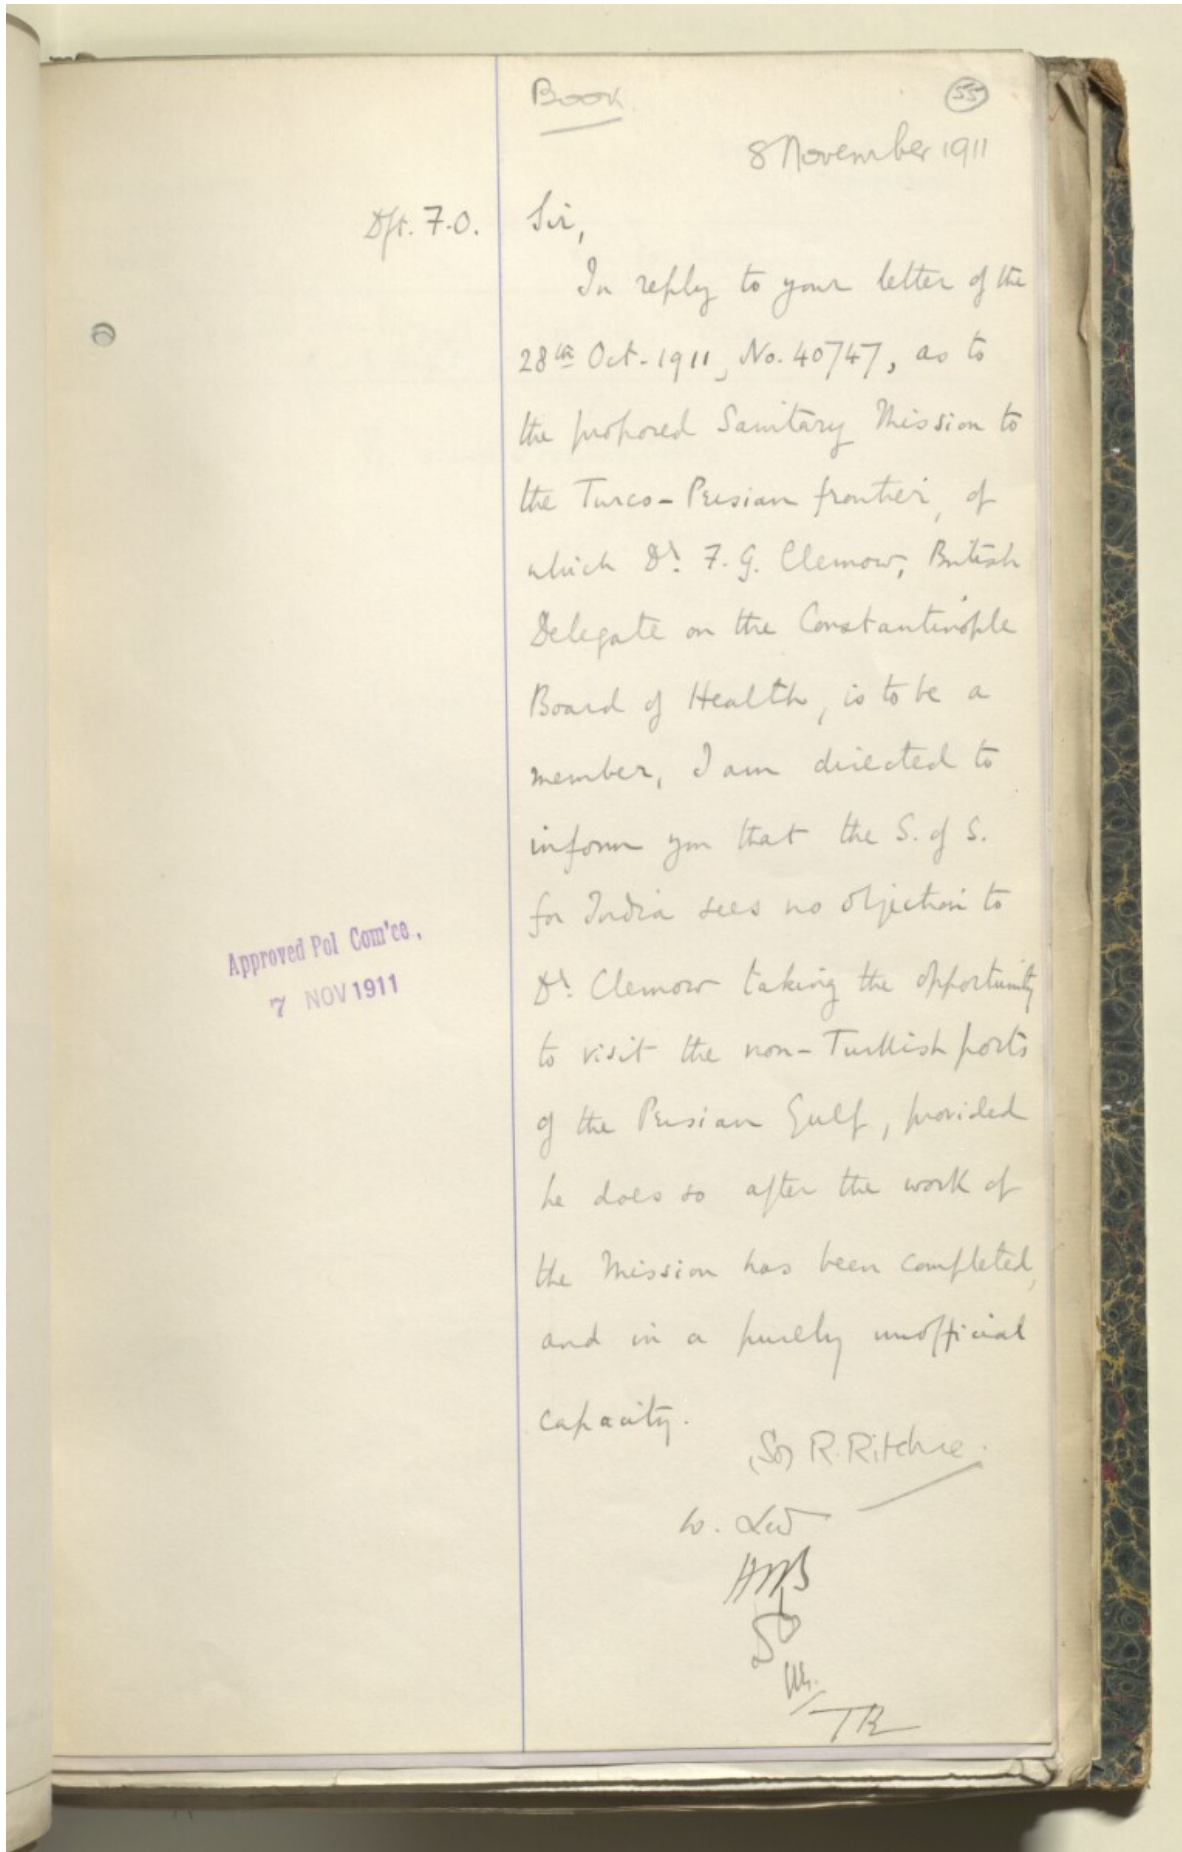 Book
55
8 November 1911
Dft. F.O.
Sir,
In reply to your letter of the
28th Oct. 1911, No. 40747, as to
the proposed Sanitary Mission to
the Turco-Persian frontier, of
which Dr. F. G. Clemow, British
Delegate on the Constantinople
Board of Health, is to be a
member, I am directed to
inform you that the S. of S.
for India sees no objection to
Dr. Clemow taking the opportunity
to visit the non-Turkish ports
of the Persian Gulf, provided
he does so after the work of
the Mission has been completed,
and in a purely unofficial
capacity.
Approved Pol Com'ee.,
7 NOV 1911
R. Ritchie.
TR